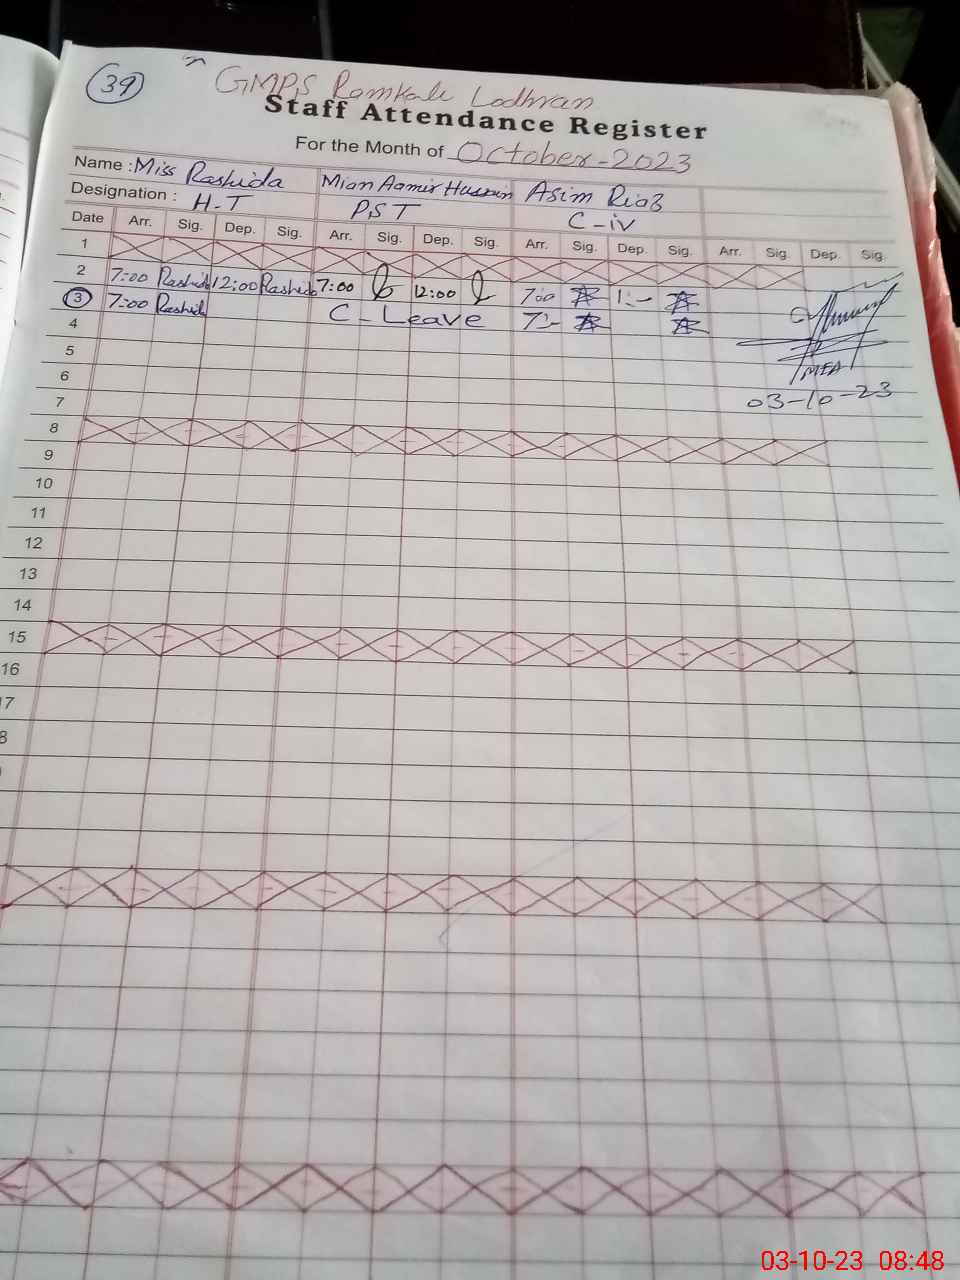 39
GMPS Ramkali Lodhran
Staff Attendance Register
For the Month of October-2023
Name : Miss Rashida Mian Aamir Hussain Asim Riaz
Designation : H.T PST C-iv
Date Arr. Sig. Dep. Sig. Arr. Sig. Dep. Sig. Arr. Sig. Dep. Sig. Arr. Sig. Dep. Sig.
1
2 7:00 Rashida 12:00 Rashida 7:00 12:00 7:00 1:-
3 7:00 Rashida C-Leave 7:-
4
5
6
MEA
7 03-10-23
8
9
10
11
12
13
14
15
16
17
8
03-10-23 08:48